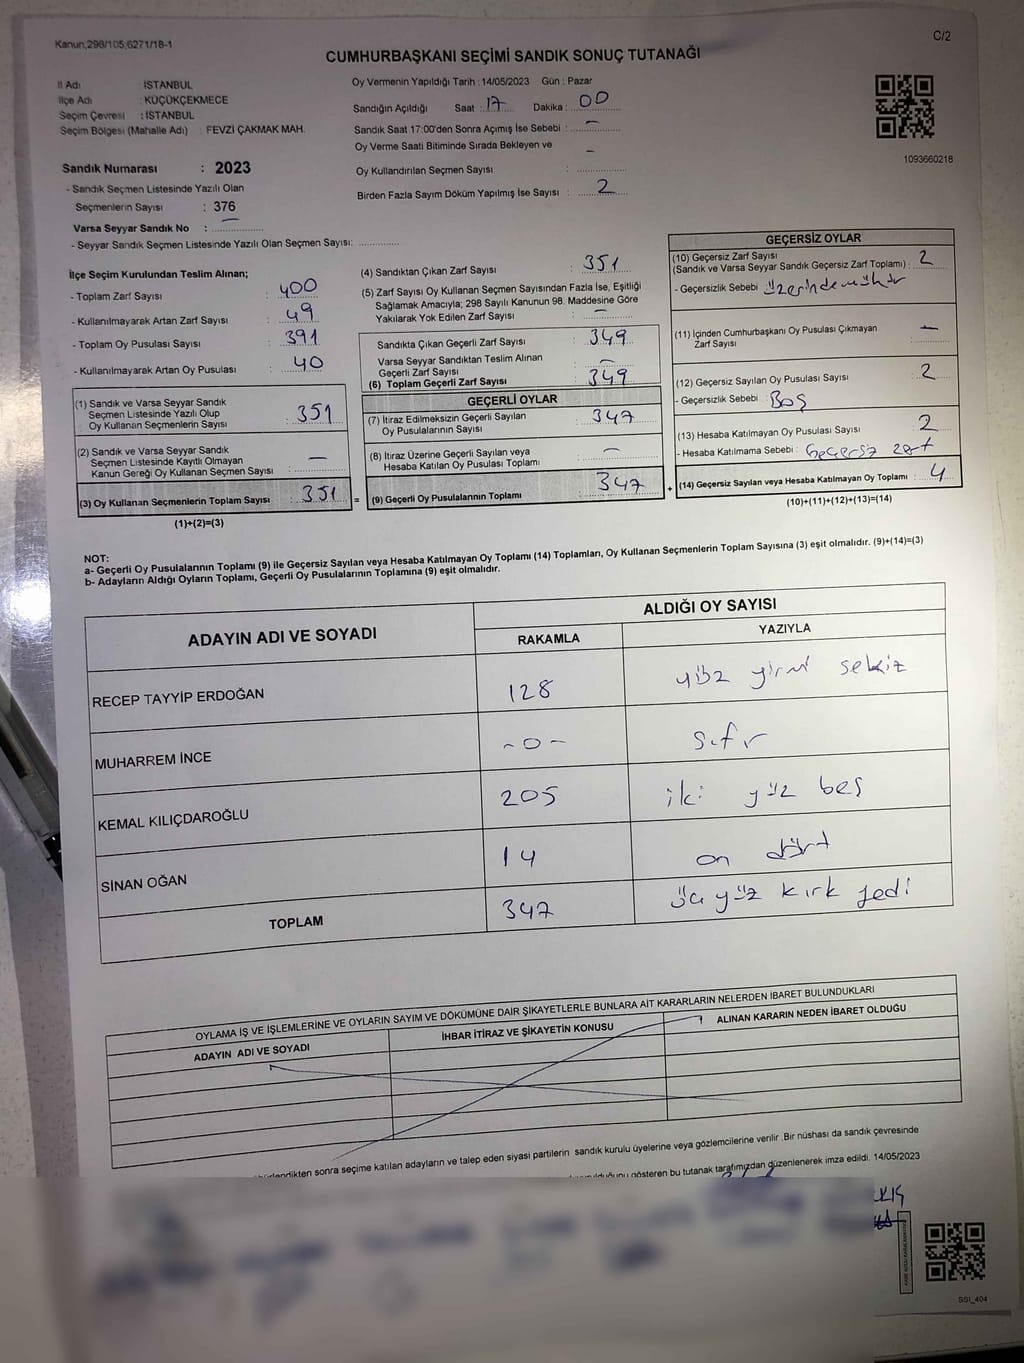 Kanun;298/105;6271/18-1
C/2
CUMHURBAŞKANI SEÇİMİ SANDIK SONUÇ TUTANAĞI
İl Adı : İSTANBUL
İlçe Adı : KÜÇÜKÇEKMECE
Seçim Çevresi : İSTANBUL
Seçim Bölgesi (Mahalle Adı) : FEVZİ ÇAKMAK MAH.
Oy Vermenin Yapıldığı Tarih : 14/05/2023 Gün : Pazar
Sandığın Açıldığı Saat : 17 Dakika : 00
Sandık Saat 17:00'den Sonra Açımış İse Sebebi : –
Oy Verme Saati Bitiminde Sırada Bekleyen ve
Oy Kullandırılan Seçmen Sayısı : –
Birden Fazla Sayım Döküm Yapılmış İse Sayısı : 2
1093660218
Sandık Numarası : 2023
- Sandık Seçmen Listesinde Yazılı Olan
Seçmenlerin Sayısı : 376
Varsa Seyyar Sandık No : –
- Seyyar Sandık Seçmen Listesinde Yazılı Olan Seçmen Sayısı: ............
İlçe Seçim Kurulundan Teslim Alınan;
- Toplam Zarf Sayısı : 400
- Kullanılmayarak Artan Zarf Sayısı : 49
- Toplam Oy Pusulası Sayısı : 391
- Kullanılmayarak Artan Oy Pusulası : 40
(1) Sandık ve Varsa Seyyar Sandık
Seçmen Listesinde Yazılı Olup
Oy Kullanan Seçmenlerin Sayısı : 351
(2) Sandık ve Varsa Seyyar Sandık
Seçmen Listesinde Kayıtlı Olmayan
Kanun Gereği Oy Kullanan Seçmen Sayısı : –
(3) Oy Kullanan Seçmenlerin Toplam Sayısı : 351 =
(1)+(2)=(3)
(4) Sandıktan Çıkan Zarf Sayısı : 351
(5) Zarf Sayısı Oy Kullanan Seçmen Sayısından Fazla İse, Eşitliği
Sağlamak Amacıyla; 298 Sayılı Kanunun 98. Maddesine Göre
Yakılarak Yok Edilen Zarf Sayısı : –
Sandıkta Çıkan Geçerli Zarf Sayısı : 349
Varsa Seyyar Sandıktan Teslim Alınan
Geçerli Zarf Sayısı : –
(6) Toplam Geçerli Zarf Sayısı : 349
GEÇERLİ OYLAR
(7) İtiraz Edilmeksizin Geçerli Sayılan
Oy Pusulalarının Sayısı : 347
(8) İtiraz Üzerine Geçerli Sayılan veya
Hesaba Katılan Oy Pusulası Toplamı : –
(9) Geçerli Oy Pusulalarının Toplamı : 347 +
GEÇERSİZ OYLAR
(10) Geçersiz Zarf Sayısı
(Sandık ve Varsa Seyyar Sandık Geçersiz Zarf Toplamı) : 2
- Geçersizlik Sebebi : üzerinde mühür
(11) İçinden Cumhurbaşkanı Oy Pusulası Çıkmayan
Zarf Sayısı : –
(12) Geçersiz Sayılan Oy Pusulası Sayısı : 2
- Geçersizlik Sebebi : Boş
(13) Hesaba Katılmayan Oy Pusulası Sayısı : 2
- Hesaba Katılmama Sebebi : Geçersiz zarf
(14) Geçersiz Sayılan veya Hesaba Katılmayan Oy Toplamı : 4
(10)+(11)+(12)+(13)=(14)
NOT:
a- Geçerli Oy Pusulalarının Toplamı (9) ile Geçersiz Sayılan veya Hesaba Katılmayan Oy Toplamı (14) Toplamları, Oy Kullanan Seçmenlerin Toplam Sayısına (3) eşit olmalıdır. (9)+(14)=(3)
b- Adayların Aldığı Oyların Toplamı, Geçerli Oy Pusulalarının Toplamına (9) eşit olmalıdır.
ADAYIN ADI VE SOYADI
ALDIĞI OY SAYISI
RAKAMLA YAZIYLA
RECEP TAYYİP ERDOĞAN 128 yüz yirmi sekiz
MUHARREM İNCE -0- sıfır
KEMAL KILIÇDAROĞLU 205 iki yüz beş
SİNAN OĞAN 14 on dört
TOPLAM 347 üç yüz kırk yedi
OYLAMA İŞ VE İŞLEMLERİNE VE OYLARIN SAYIM VE DÖKÜMÜNE DAİR ŞİKAYETLERLE BUNLARA AİT KARARLARIN NELERDEN İBARET BULUNDUKLARI
ADAYIN ADI VE SOYADI İHBAR İTİRAZ VE ŞİKAYETİN KONUSU ALINAN KARARIN NEDEN İBARET OLDUĞU
sonra seçime katılan adayların ve talep eden siyasi partilerin sandık kurulu üyelerine veya gözlemcilerine verilir .Bir nüshası da sandık çevresinde
gösteren bu tutanak tarafımızdan düzenlenerek imza edildi. 14/05/2023
SSI_404